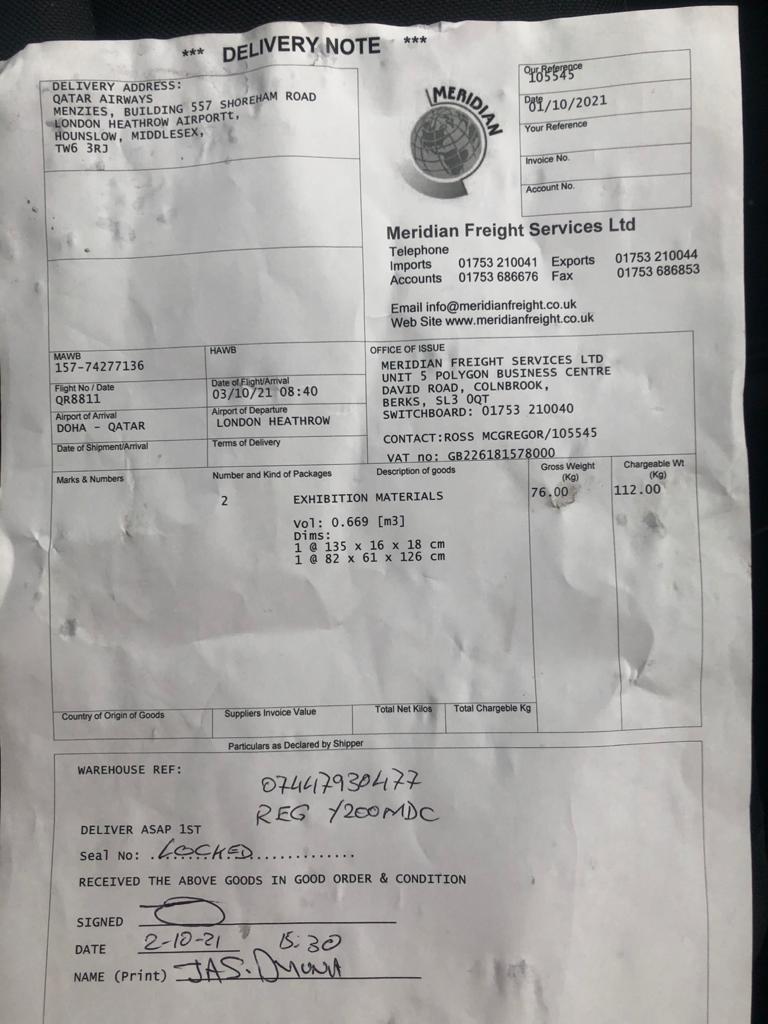 *** DELIVERY NOTE ***
DELIVERY ADDRESS:
QATAR AIRWAYS
MENZIES, BUILDING 557 SHOREHAM ROAD
LONDON HEATHROW AIRPORTt,
HOUNSLOW, MIDDLESEX,
TW6 3RJ
MERIDIAN
Our Reference
105545
Date
01/10/2021
Your Reference
Invoice No.
Account No.
Meridian Freight Services Ltd
Telephone
Imports 01753 210041 Exports 01753 210044
Accounts 01753 686676 Fax 01753 686853
Email info@meridianfreight.co.uk
Web Site www.meridianfreight.co.uk
MAWB
157-74277136
HAWB
Flight No / Date
QR8811
Date of Flight/Arrival
03/10/21 08:40
Airport of Arrival
DOHA - QATAR
Airport of Departure
LONDON HEATHROW
Date of Shipment/Arrival
Terms of Delivery
OFFICE OF ISSUE
MERIDIAN FREIGHT SERVICES LTD
UNIT 5 POLYGON BUSINESS CENTRE
DAVID ROAD, COLNBROOK,
BERKS, SL3 0QT
SWITCHBOARD: 01753 210040
CONTACT:ROSS MCGREGOR/105545
VAT no: GB226181578000
Marks & Numbers
Number and Kind of Packages
Description of goods
Gross Weight (Kg)
Chargeable Wt (Kg)
2 EXHIBITION MATERIALS 76.00 112.00
Vol: 0.669 [m3]
Dims:
1 @ 135 x 16 x 18 cm
1 @ 82 x 61 x 126 cm
Country of Origin of Goods
Suppliers Invoice Value
Total Net Kilos
Total Chargeble Kg
Particulars as Declared by Shipper
WAREHOUSE REF:
07447930477
REG Y200MDC
DELIVER ASAP 1ST
Seal No: .LOCKED..............
RECEIVED THE ABOVE GOODS IN GOOD ORDER & CONDITION
SIGNED
DATE 2-10-21 15:30
NAME (Print) JAS.